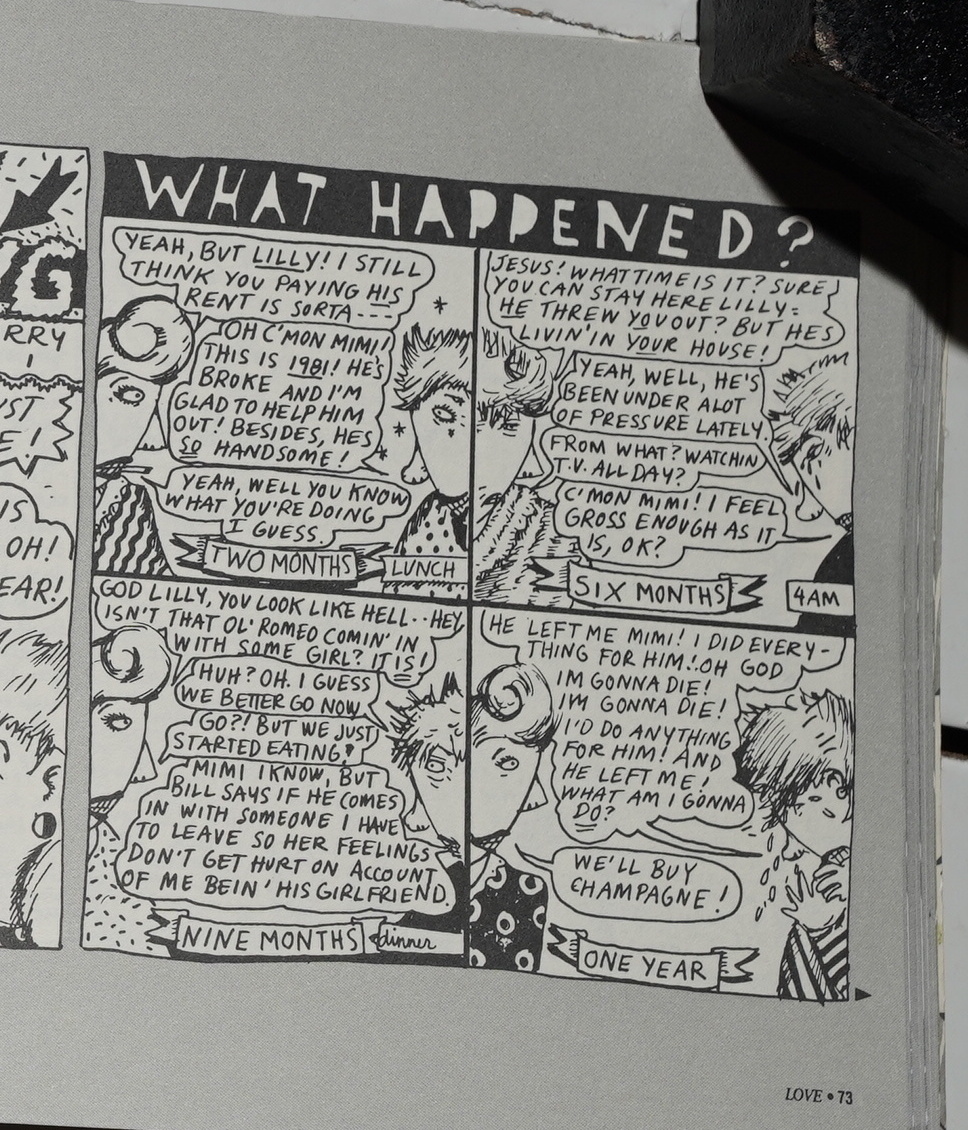 G
RRY
I
UST
E!
IS
OH!
EAR!
WHAT HAPPENED?
YEAH, BUT LILLY! I STILL
THINK YOU PAYING HIS
RENT IS SORTA---
OH C'MON MIMI!
THIS IS 1981! HE'S
BROKE AND I'M
GLAD TO HELP HIM
OUT! BESIDES, HES
SO HANDSOME!
YEAH, WELL YOU KNOW
WHAT YOU'RE DOING
I GUESS.
TWO MONTHS
LUNCH
JESUS! WHAT TIME IS IT? SURE
YOU CAN STAY HERE LILLY=
HE THREW YOU OUT? BUT HES
LIVIN' IN YOUR HOUSE!
YEAH, WELL, HE'S
BEEN UNDER ALOT
OF PRESSURE LATELY.
FROM WHAT? WATCHIN
T.V. ALL DAY?
C'MON MIMI! I FEEL
GROSS ENOUGH AS IT
IS, OK?
SIX MONTHS
4AM
GOD LILLY, YOU LOOK LIKE HELL.. HEY
ISN'T THAT OL' ROMEO COMIN' IN
WITH SOME GIRL? IT IS!
HUH? OH. I GUESS
WE BETTER GO NOW.
GO?! BUT WE JUST
STARTED EATING!
MIMI I KNOW, BUT
BILL SAYS IF HE COMES
IN WITH SOMEONE I HAVE
TO LEAVE SO HER FEELINGS
DON'T GET HURT ON ACCOUNT
OF ME BEIN' HIS GIRLFRIEND.
NINE MONTHS
dinner
HE LEFT ME MIMI! I DID EVERY-
THING FOR HIM!.OH GOD
IM GONNA DIE!
I'M GONNA DIE!
I'D DO ANYTHING
FOR HIM! AND
HE LEFT ME!
WHAT AM I GONNA
DO?
WE'LL BUY
CHAMPAGNE!
ONE YEAR
LOVE • 73